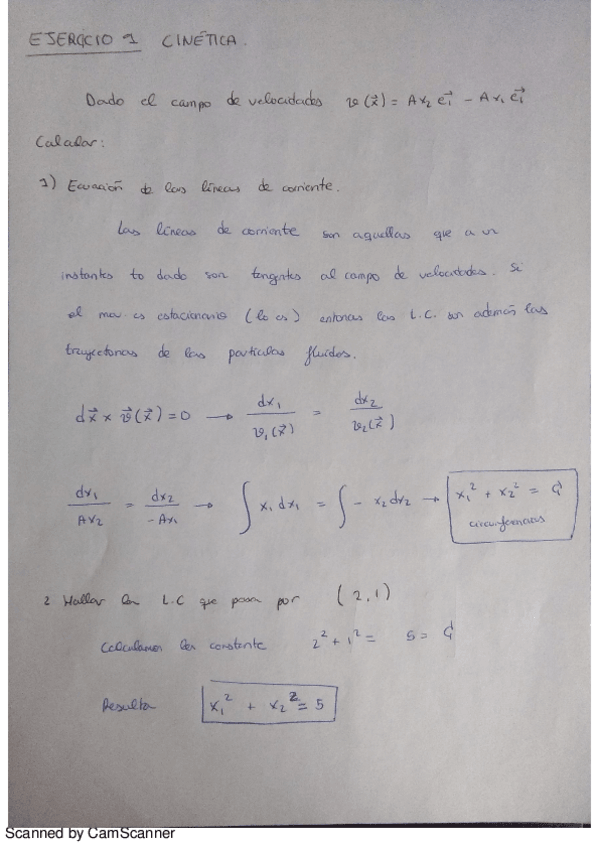 EJERCICIO 1 CINÉTICA.
Dado el campo de velocidades v(x⃗) = Ax₂ e₁⃗ - Ax₁ e₁⃗
Calcular:
1) Ecuación de las líneas de corriente.
Las líneas de corriente son aquellas que a un
instante to dado son tangentes al campo de velocidades. Si
el mov es estacionario (lo es) entonces las L.C. son además las
trayectorias de las partículas fluidas.
dx⃗ x v⃗(x⃗) = 0 → dx₁ / v₁(x⃗) = dx₂ / v₂(x⃗)
dx₁ / Ax₂ = dx₂ / -Ax₁ → ∫ x₁ dx₁ = ∫ - x₂ dx₂ → x₁² + x₂² = C
circunferencias
2 Hallar la L.C que pasa por (2,1)
Calculamos la constante 2² + 1² = 5 = C
Resulta x₁² + x₂² = 5
Scanned by CamScanner